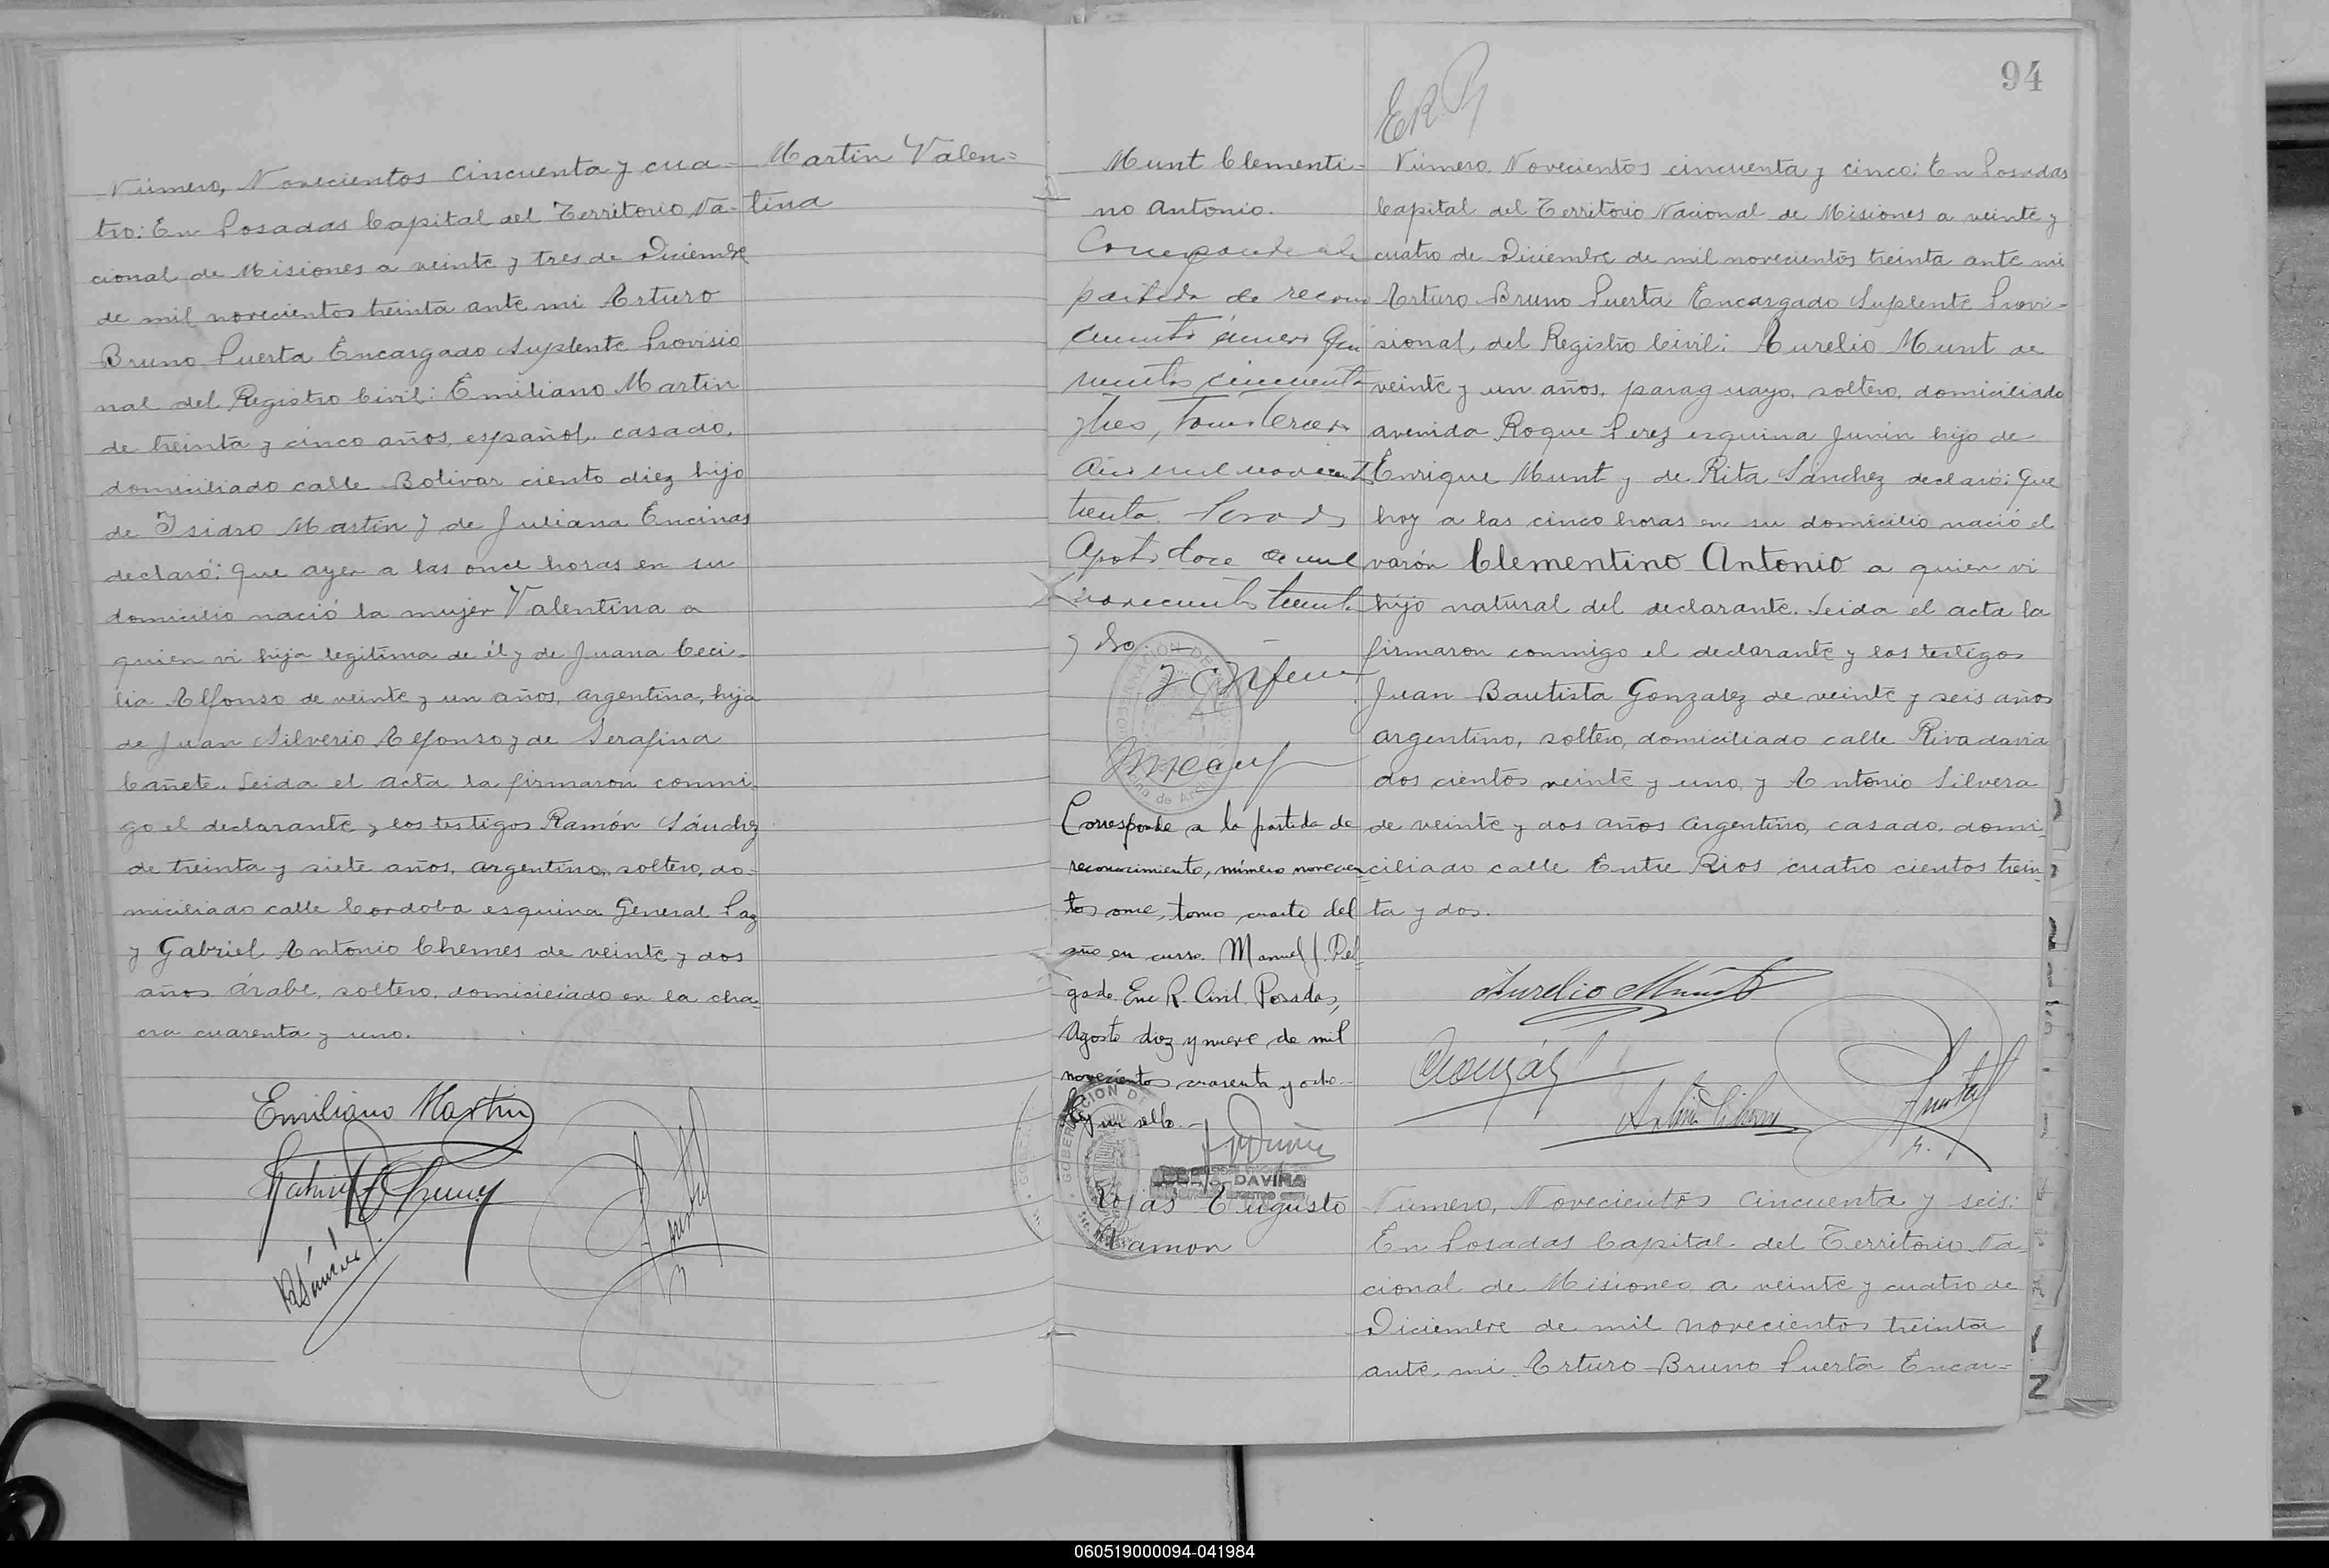 Número, Novecientos cincuenta y cua-
tro: En Posadas Capital del Territorio Na-
cional de Misiones a veinte y tres de Diciembre
de mil novecientos treinta ante mi Arturo
Bruno Puerta Encargado Suplente Provisio
nal del Registro Civil: Emiliano Martin
de treinta y cinco años, español, casado,
domiciliado calle Bolivar ciento diez hijo
de Isidro Martin y de Juliana Encinas
declaró: Que ayer a las once horas en su
domicilio nació la mujer Valentina a
quien vi hija legítima de él y de Juana Ceci-
lia Alfonso de veinte y un años, argentina, hija
de Juan Silverio Alfonso y de Serafina
Cañete. Leida el acta la firmaron conmi-
go el declarante y los testigos Ramón Sánchez
de treinta y siete años, argentino, soltero, do-
miciliado calle Cordoba esquina General Paz
y Gabriel Antonio Chemes de veinte y dos
años árabe, soltero, domiciliado en la cha-
cra cuarenta y uno.
Emiliano Martin
Martin Valen=
tina
94
Munt Clementi=
no Antonio.
Corresponde a la
partida de recono
cimiento número Qui
nientos cincuenta
y tres, tomo tercero
Año mil novecientos
treinta. Posadas
Agosto doce de mil
novecientos treinta
y do
Corresponde a la partida de
reconocimiento, número novecien=
tos once, tomo cuarto del
año en curso. Manuel J. Del-
gado. Enc R. Civil. Posadas,
Agosto diez y nueve de mil
novecientos cuarenta y ocho.-
Hay un sello.-
DAVIÑA
Rojas Augusto
Ramon
Número, Novecientos cincuenta y cinco: En Posadas
Capital del Territorio Nacional de Misiones a veinte y
cuatro de Diciembre de mil novecientos treinta ante mi
Arturo Bruno Puerta Encargado Suplente Provi-
sional, del Registro Civil: Aurelio Munt de
veinte y un años, paraguayo, soltero, domiciliado
avenida Roque Perez esquina Junin hijo de
Enrique Munt y de Rita Sanchez declaró: Que
hoy a las cinco horas en su domicilio nació el
varón Clementino Antonio a quien vi
hijo natural del declarante. Leida el acta la
firmaron conmigo el declarante y los testigos
Juan Bautista Gonzalez de veinte y seis años
argentino, soltero, domiciliado calle Rivadavia
dos cientos veinte y uno, y Antonio Silvera
de veinte y dos años argentino, casado, domi-
ciliado calle Entre Rios cuatro cientos trein-
ta y dos.
Aurelio Munt
Número, Novecientos cincuenta y seis:
En Posadas Capital del Territorio Na-
cional de Misiones a veinte y cuatro de
Diciembre de mil novecientos treinta
ante mi Arturo Bruno Puerta Encar=
Z
060519000094-041984